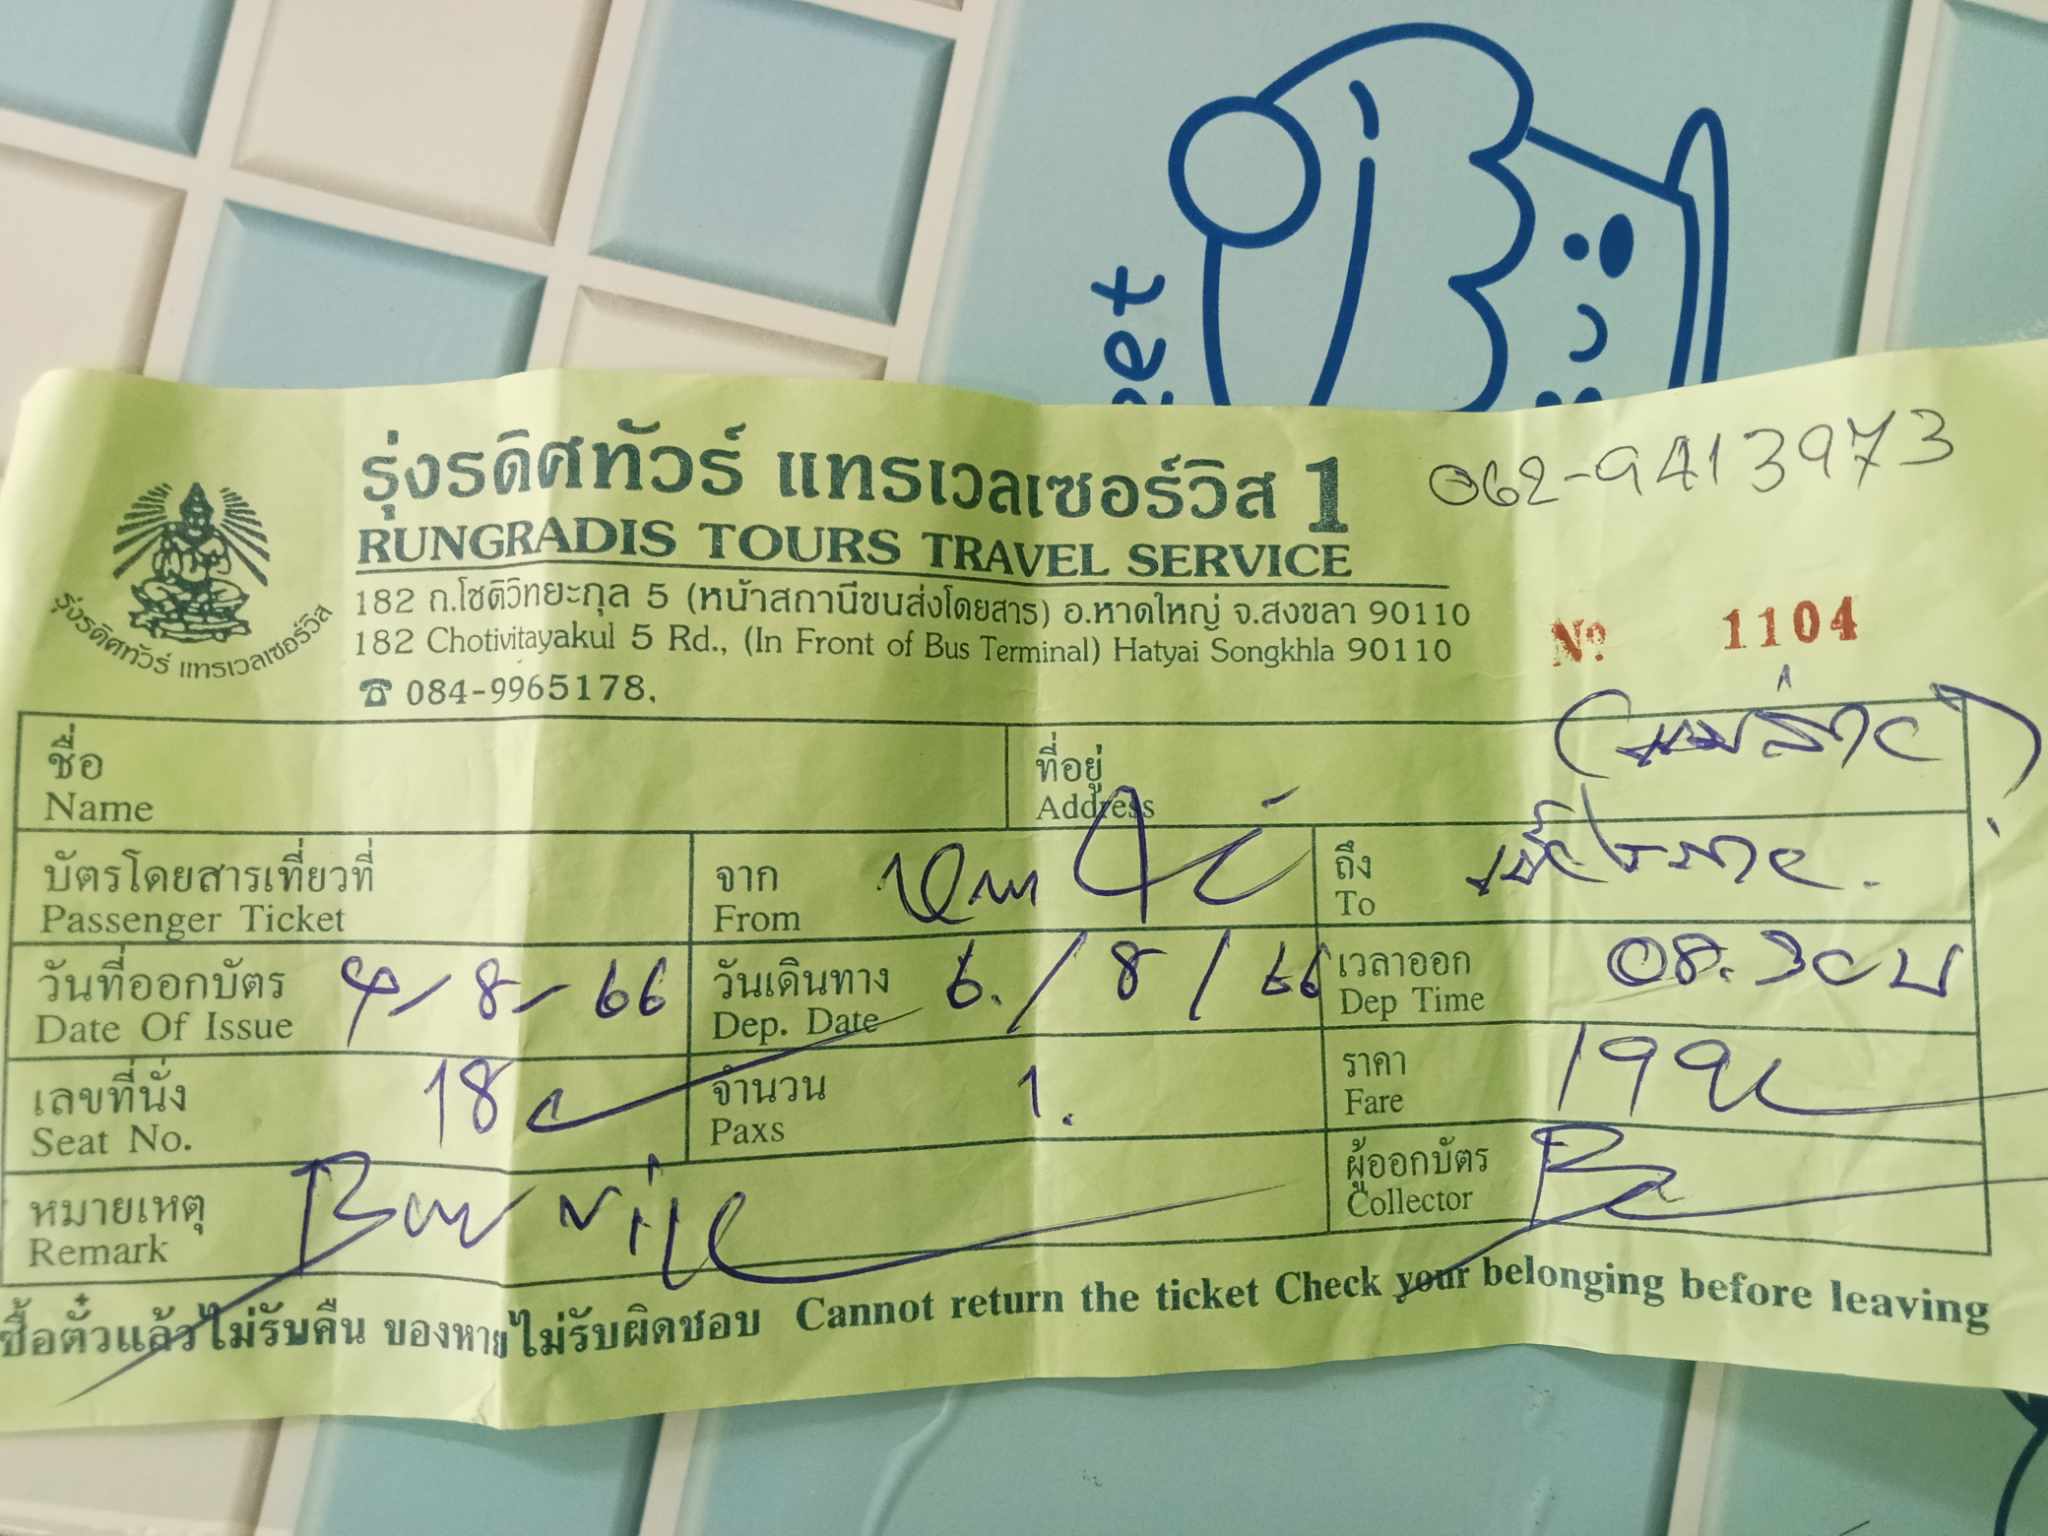 et
รุ่งรดิศทัวร์ แทรเวลเซอร์วิส 1
062-9413973
RUNGRADIS TOURS TRAVEL SERVICE
182 ถ.โชติวิทยะกุล 5 (หน้าสถานีขนส่งโดยสาร) อ.หาดใหญ่ จ.สงขลา 90110
182 Chotivitayakul 5 Rd., (In Front of Bus Terminal) Hatyai Songkhla 90110
☎ 084-9965178.
รุ่งรดิศทัวร์ แทรเวลเซอร์วิส
Nº 1104
ชื่อ
Name
ที่อยู่
Address
(แม่สาย)
บัตรโดยสารเที่ยวที่
Passenger Ticket
จาก
From หาดใหญ่
ถึง
To เชียงราย.
วันที่ออกบัตร
Date Of Issue 4-8-66
วันเดินทาง
Dep. Date 6./8/66
เวลาออก
Dep Time 08.30น
เลขที่นั่ง
Seat No. 18
จำนวน
Paxs 1.
ราคา
Fare 199
หมายเหตุ
Remark
ผู้ออกบัตร
Collector
ซื้อตั๋วแล้วไม่รับคืน ของหายไม่รับผิดชอบ Cannot return the ticket Check your belonging before leaving